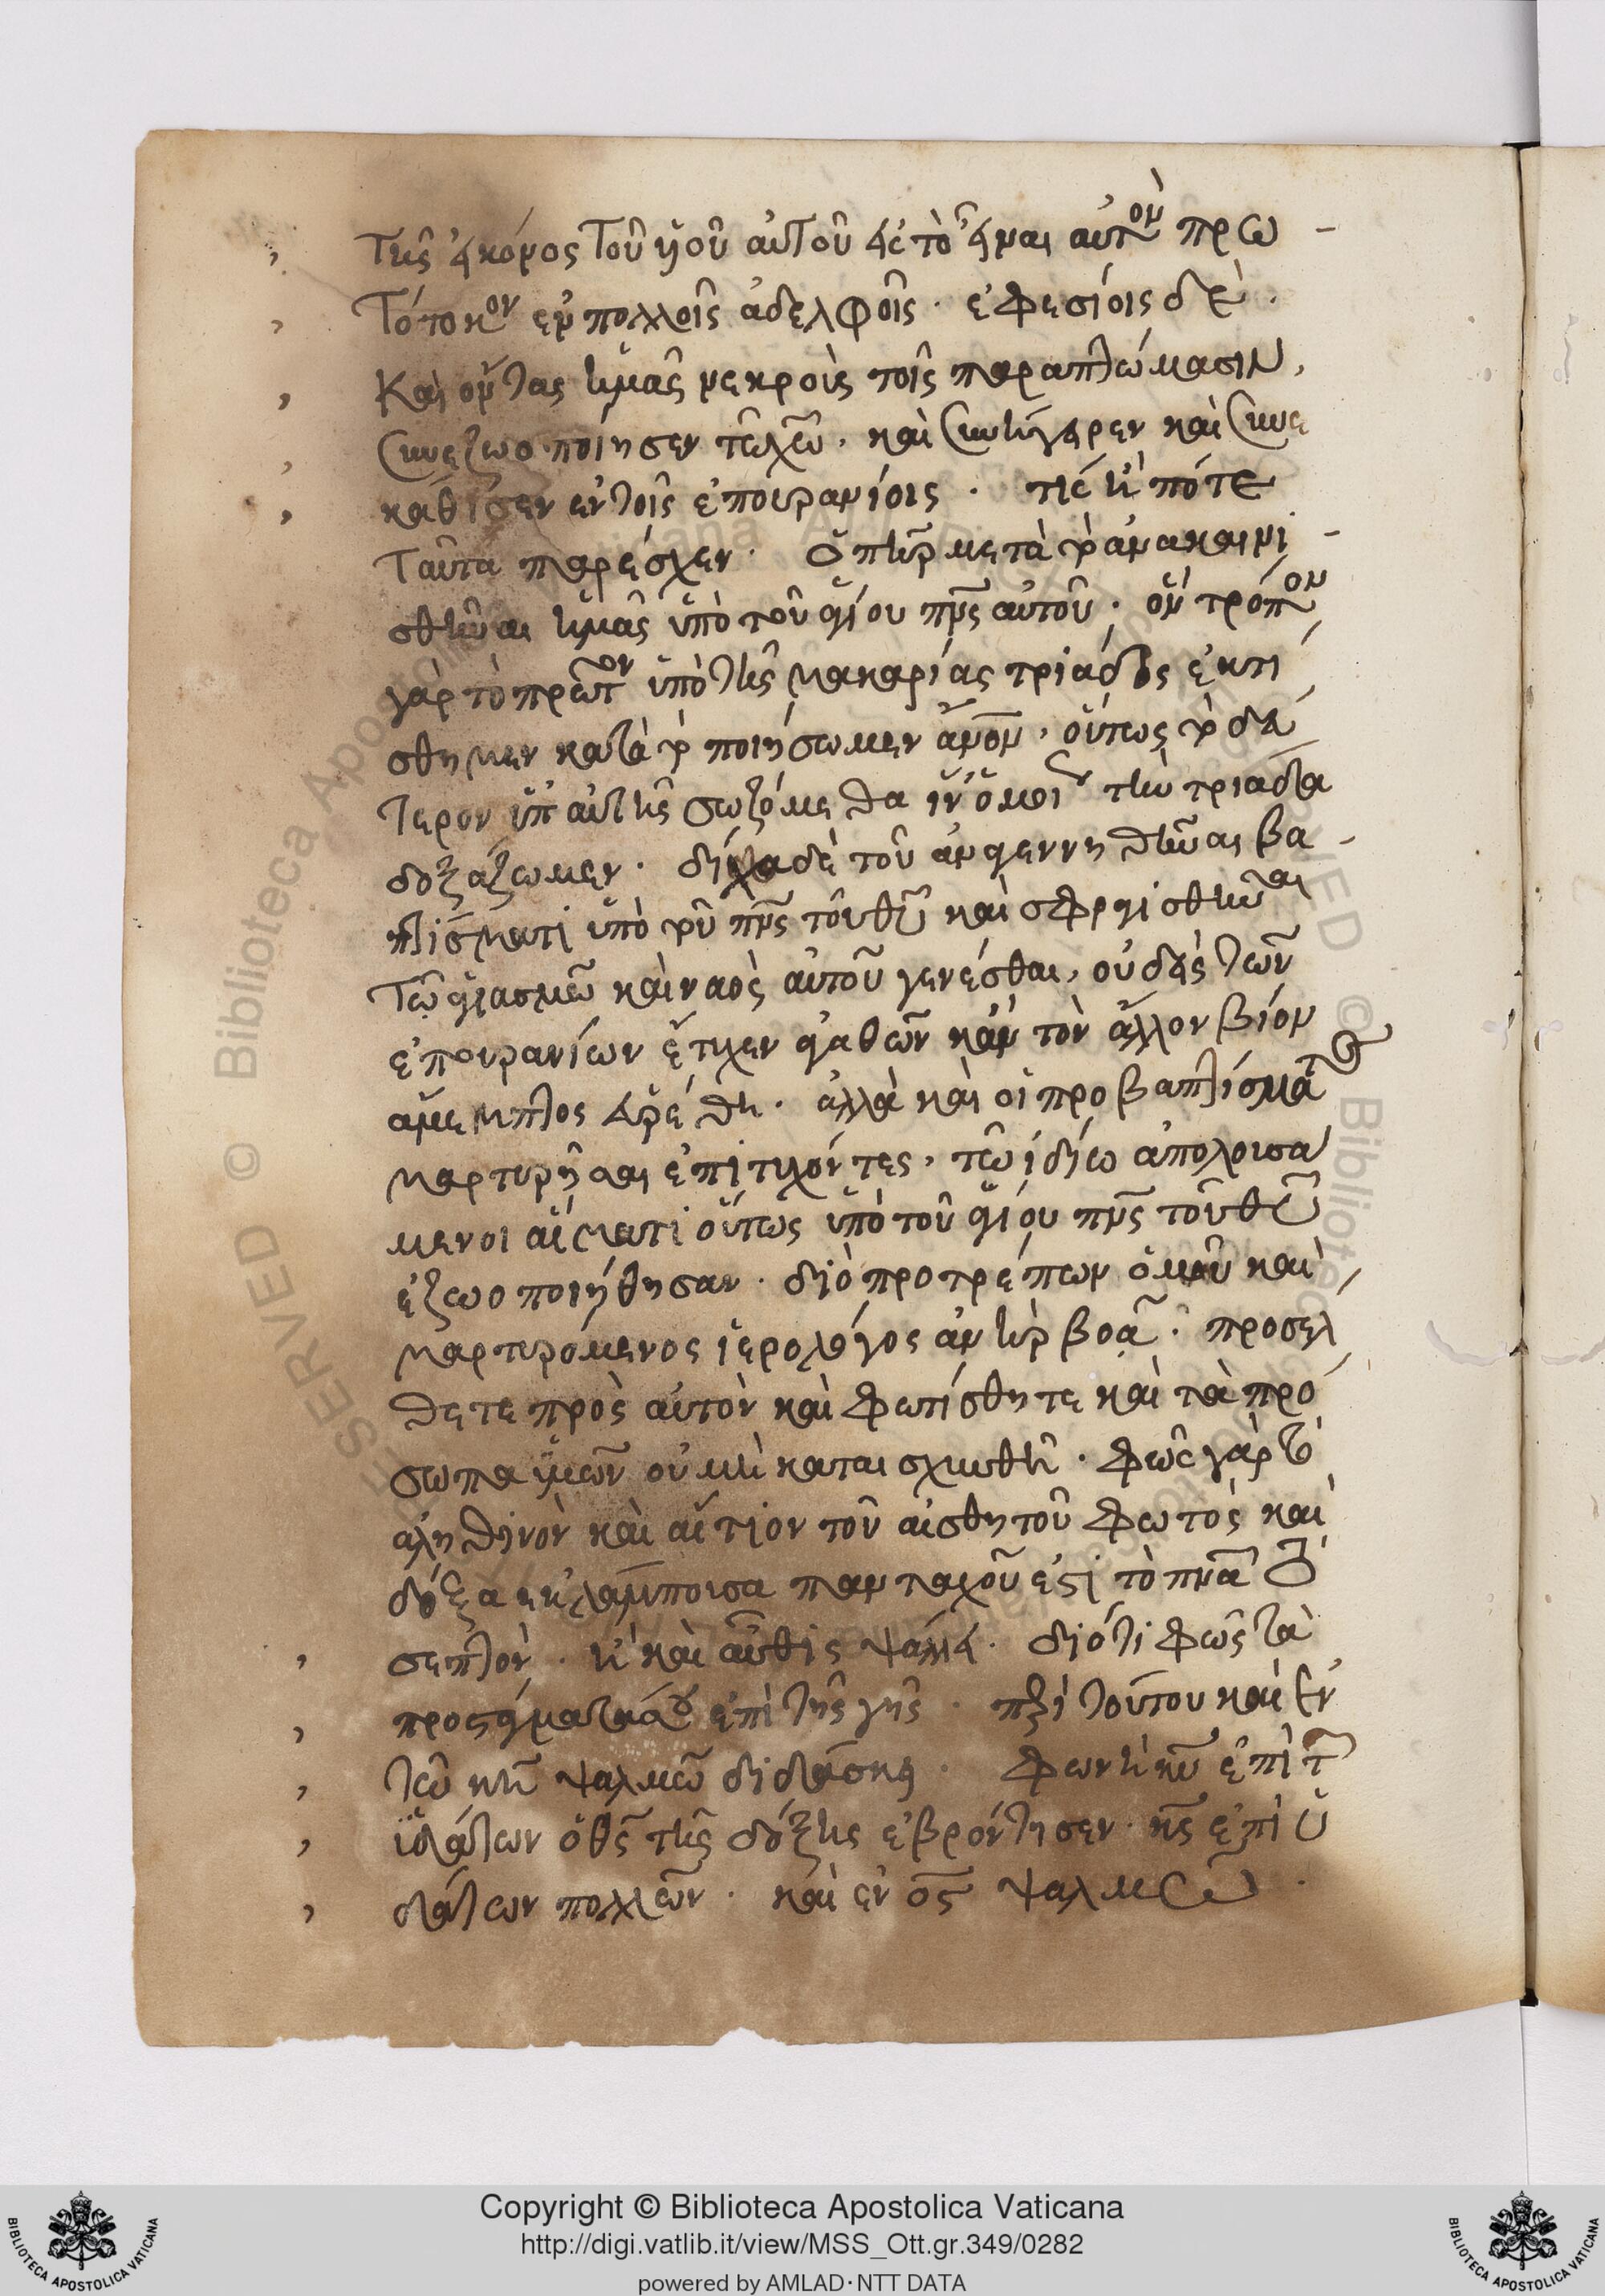 τῆς εἰκόνος τοῦ υἱοῦ αὐτοῦ εἰς τὸ εἶναι αὐτὸν πρω
τότοκον ἐν πολλοῖς ἀδελφοῖς · ἐφεσίοις δὲ ·
Καὶ ὄντας ἡμᾶς νεκροὺς τοῖς παραπτώμασιν,
συνεζωοποίησεν τῷ χῷ, καὶ συνήγειρεν καὶ συνε
κάθισεν ἐν τοῖς ἐπουρανίοις ·
ταῦτα παρέσχεν · ὅπερ μετὰ τὸ ἀνακαινι
σθῆναι ἡμᾶς ὑπὸ τοῦ ἁγίου πνς αὐτοῦ · ὃν τρόπον
γὰρ τὸ πρῶτον ὑπὸ τῆς μακαρίας τριάδος ἐκτί
σθημεν κατὰ τὸ ποιήσωμεν ἄνον, οὕτως τὸ δεύ
τερον ὑπ' αὐτῆς σωζόμεθα ἵν' ὁμοῦ τὴν τριάδα
δοξάζωμεν · δίχα δὲ τοῦ ἀναγεννηθῆναι βα
πτίσματι ὑπὸ τοῦ πνς τοῦ θυ καὶ σφραγισθῆναι
τῷ ἁγιασμῷ καὶ ναὸς αὐτοῦ γενέσθαι, οὐδεὶς τῶν
ἐπουρανίων ἔτυχεν ἀγαθῶν κἂν τὸν ἄλλον βίον
ἄμεμπτος εὑρέθη · ἀλλὰ καὶ οἱ προ βαπτίσματος
μαρτυρῆσαι ἐπιτυχόντες, τῷ ἰδίῳ ἀπολουσά
μενοι αἵματι οὕτως ὑπὸ τοῦ ἁγίου πνς τοῦ θυ
ἐζωοποιήθησαν · διὸ προτρέπων ὁμοῦ καὶ
μαρτυρόμενος ἱερολόγος ἀνὴρ βοᾷ · προσέλ
θετε πρὸς αὐτὸν καὶ φωτίσθητε καὶ τὰ πρό
σωπα ὑμῶν οὐ μὴ καταισχυνθῇ · φῶς γὰρ τὸ
ἀληθινὸν καὶ αἴτιον τοῦ αἰσθητοῦ φωτὸς καὶ
δόξα ἐκλάμπουσα πανταχοῦ ἐστὶ τὸ πνα τὸ
σεπτὸν · ᾗ καὶ αὖθις ψάλλει · διότι φῶς τὰ
προστάγματά σου ἐπὶ τῆς γῆς · περὶ τούτου καὶ ἐν
τῷ κη ψαλμῷ διδάσκει · φωνὴ κυ ἐπὶ τῶν
ὑδάτων ὁ θς τῆς δόξης ἐβρόντησεν · κς ἐπὶ ὑ
δάτων πολλῶν · καὶ ἐν ος ψαλμῷ ·
Copyright © Biblioteca Apostolica Vaticana
http://digi.vatlib.it/view/MSS_Ott.gr.349/0282
powered by AMLAD·NTT DATA